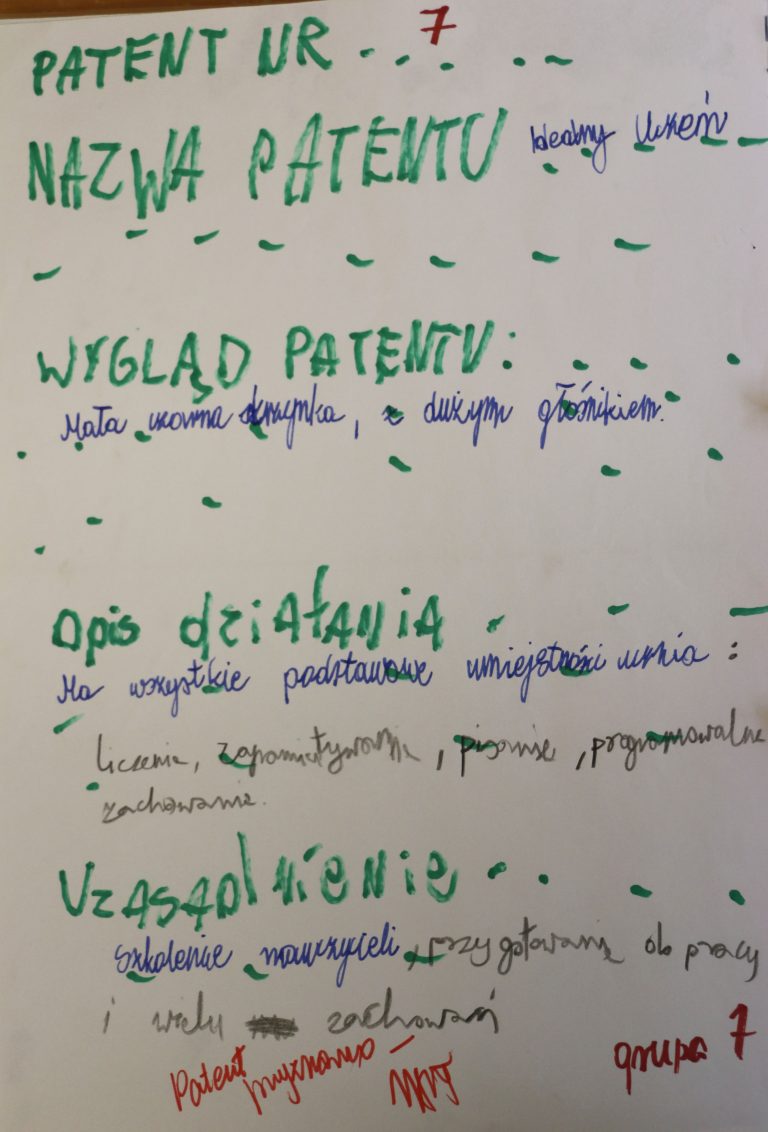 PATENT NR 7
NAZWA PATENTU Idealny Uczeń
WYGLĄD PATENTU:
Mała czarna skrzynka, z dużym głośnikiem.
Opis działania
Ma wszystkie podstawowe umiejętności ucznia :
liczenie, zapamiętywanie, pisanie, programowalne
zachowanie.
Uzasądnienie
Szkolenie nauczycieli, przygotowanie do pracy
i wielu zachowań
Patent
przyznano –
grupa 7